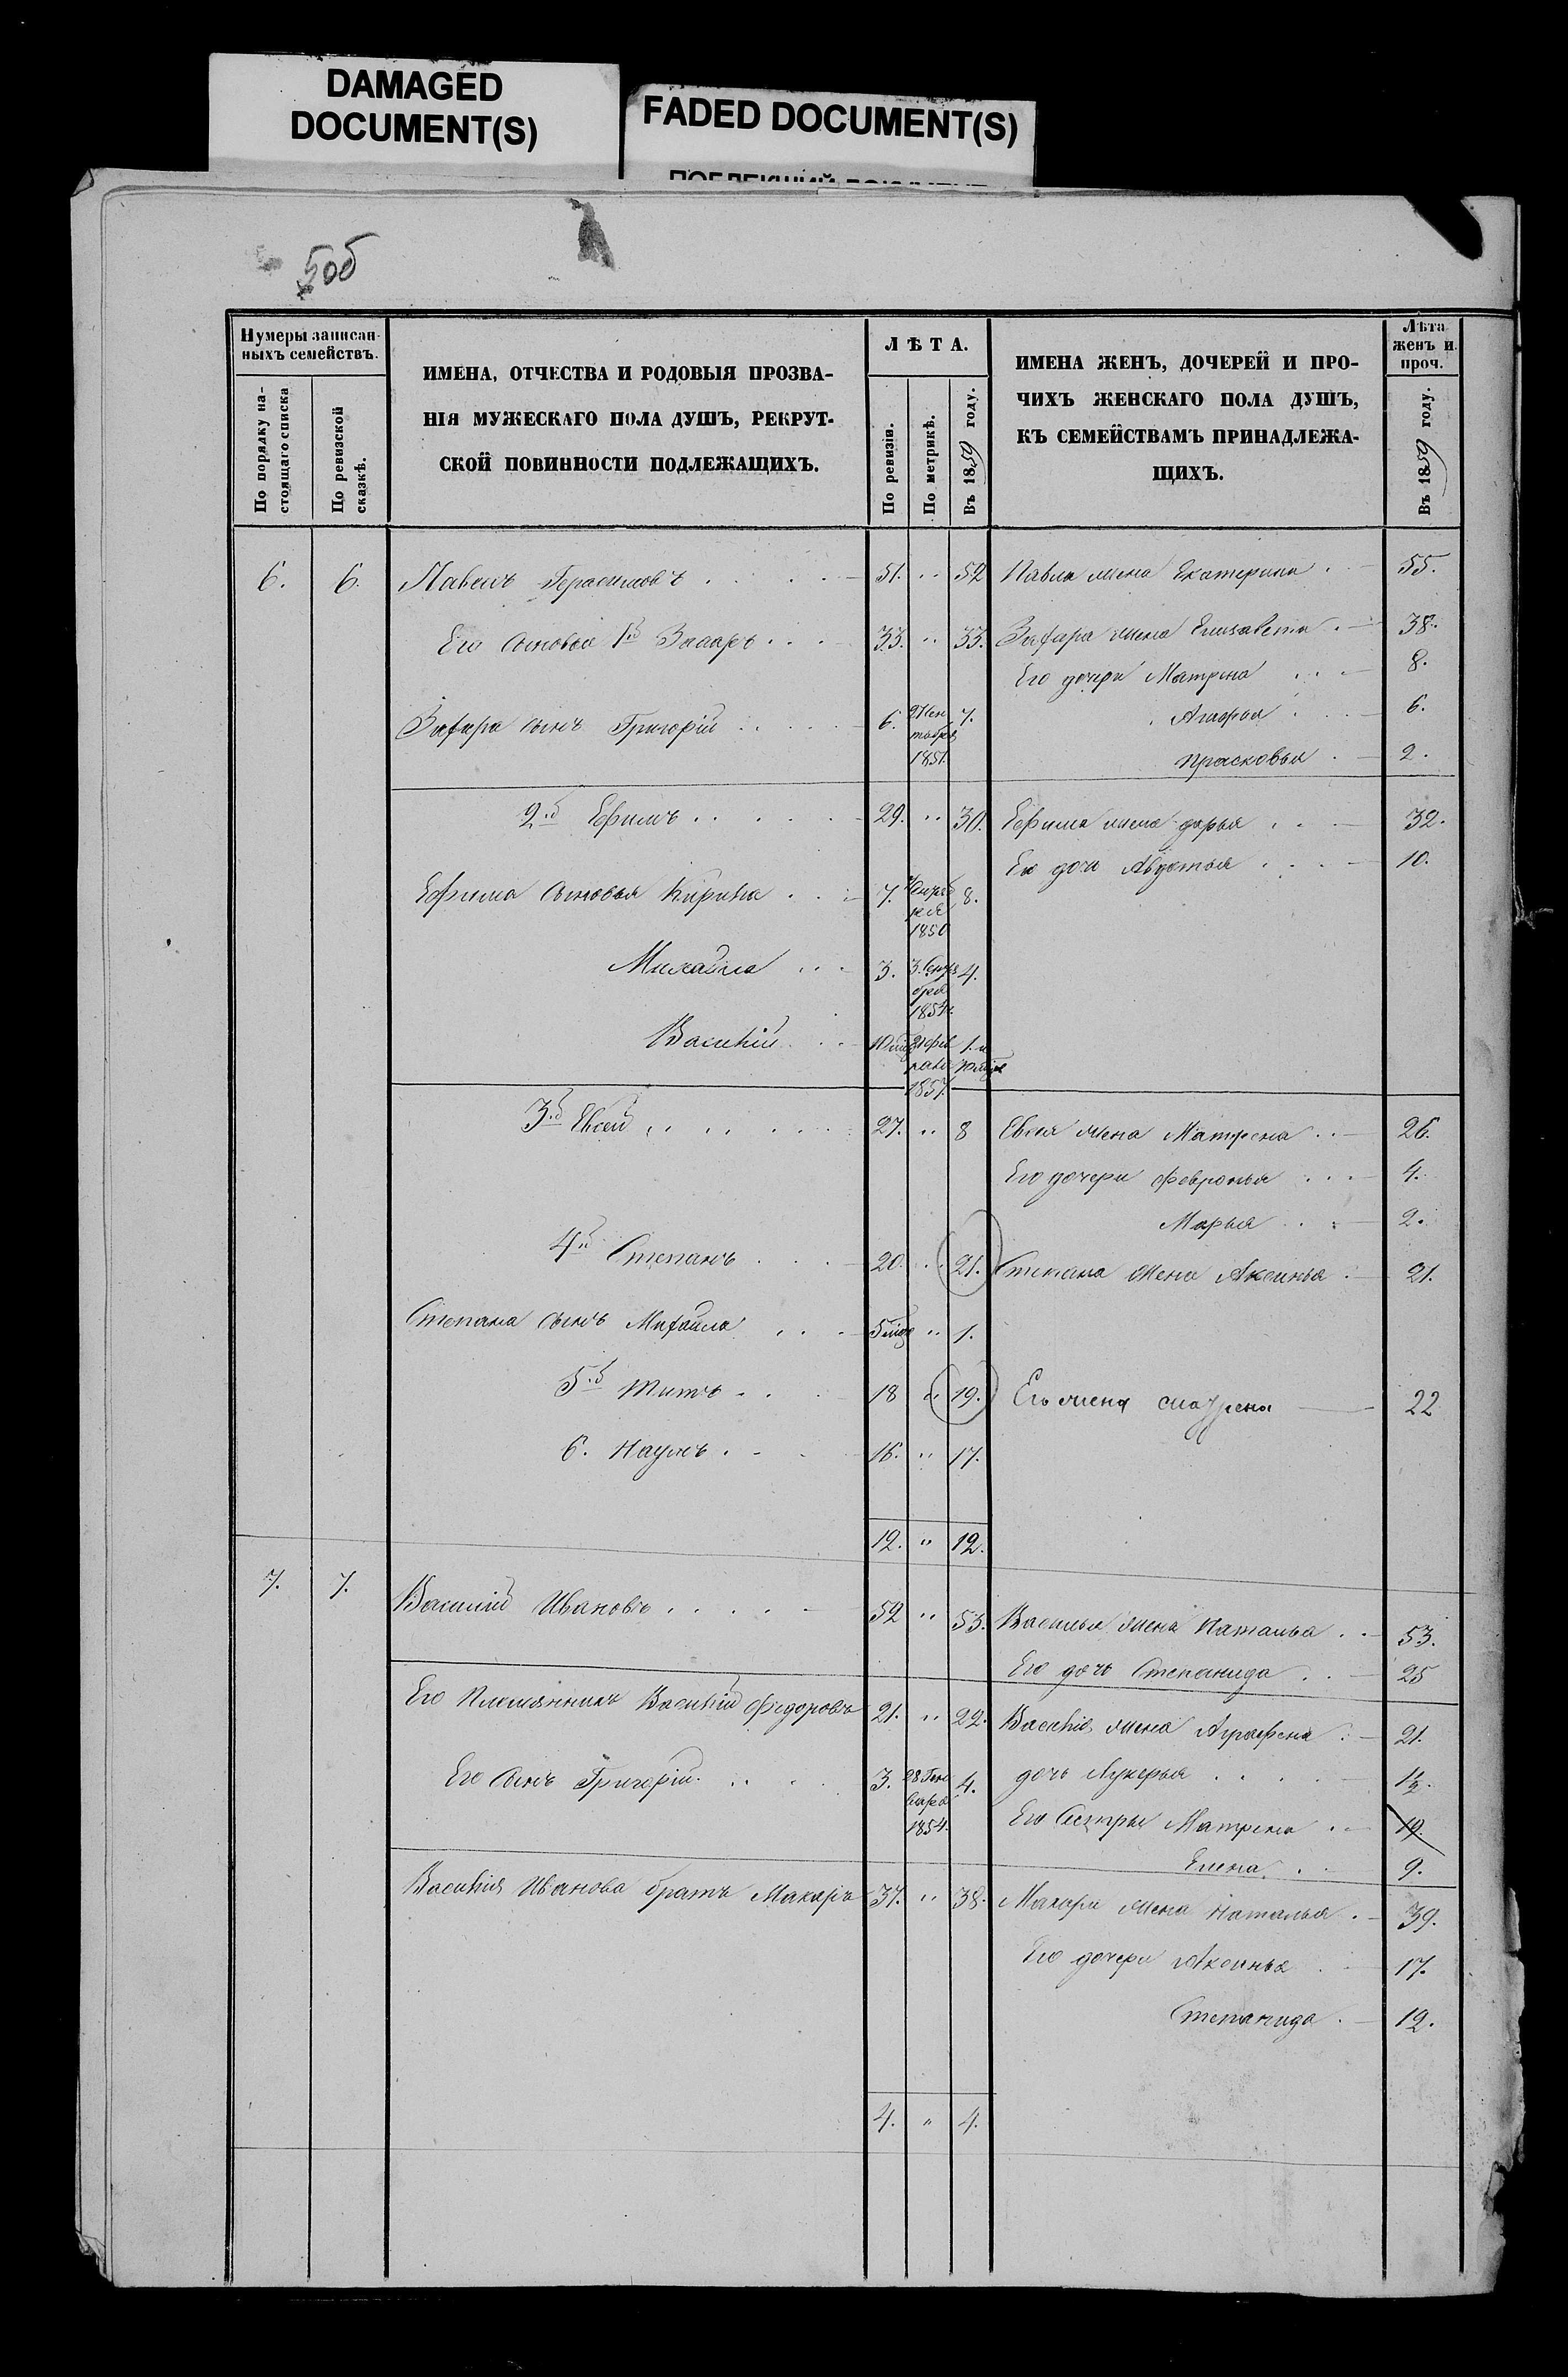 DAMAGED
DOCUMENT(S)
FADED DOCUMENT(S)
506
Нумеры записан-
ныхъ семействъ.
По порядку на-
стоящаго списка
По ревизской
сказкѣ.
ИМЕНА, ОТЧЕСТВА И РОДОВЫЯ ПРОЗВА-
НІЯ МУЖЕСКАГО ПОЛА ДУШЪ, РЕКРУТ-
СКОЙ ПОВИННОСТИ ПОДЛЕЖАЩИХЪ.
ЛѢТА.
По ревизіи.
По метрикѣ.
Въ 1859 году.
ИМЕНА ЖЕНЪ, ДОЧЕРЕЙ И ПРО-
ЧИХЪ ЖЕНСКАГО ПОЛА ДУШЪ,
КЪ СЕМЕЙСТВАМЪ ПРИНАДЛЕЖА-
ЩИХЪ.
Лѣта
женъ и
проч.
Въ 1859 году.
6. 6. Павелъ Герасимовъ 51. " 52 Павла жена Екатерина 55.
Его сыновья 1й Захаръ 33. " 33. Захара жена Елисавета 38.
Его дочери Матрена 8.
Захара сынъ Григорій 6. 7. Агафья 6.
1851.
Прасковья 2.
2й Ефимъ 29. " 30. Ефима жена Дарья 32.
Его дочь Авдотья 10.
Ефима сыновья Кирила 7. 8.
1850
Михайла 3. 3. Сентя 4.
бря
1854.
Василій 21 фев 1. и
раля
1857.
3й Евсей 27. " 8 Евсея жена Матрена 26.
Его дочери Февронья 4.
Марья 2.
4й Степанъ 20. " 21. Степана жена Аксинья 21.
Степана сынъ Михайла " 1.
5й Титъ 18 " 19. Его жена 22
6. Наумъ 16. " 17.
12. " 12.
7. 7. Василій Ивановъ 52 " 53. Василья жена Наталья 53.
Его дочь Степанида 25
Его Племянникъ Василій Федоровъ 21. " 22. Василія жена Аграфена 21.
Его сынъ Григорій 3. 28 Ген 4. дочь Лукерья 1½.
варя
1854.
Его Сестры Матрена 19.
Елена 9.
Василія Иванова братъ Макаръ 37. " 38. Макара жена Наталья 39.
Его дочери Аксинья 17.
Степанида 12.
4. " 4.